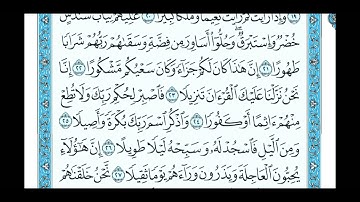 ١٩ وَإِذَا رَأَيْتَ ثَمَّ رَأَيْتَ نَعِيمًا وَمُلْكًا كَبِيرًا ٢٠ عَٰلِيَهُمْ ثِيَابُ سُندُسٍ
خُضْرٌ وَإِسْتَبْرَقٌ وَحُلُّوٓا۟ أَسَاوِرَ مِن فِضَّةٍ وَسَقَىٰهُمْ رَبُّهُمْ شَرَابًا
طَهُورًا ٢١ إِنَّ هَٰذَا كَانَ لَكُمْ جَزَآءً وَكَانَ سَعْيُكُم مَّشْكُورًا ٢٢ إِنَّا
نَحْنُ نَزَّلْنَا عَلَيْكَ ٱلْقُرْءَانَ تَنزِيلًا ٢٣ فَٱصْبِرْ لِحُكْمِ رَبِّكَ وَلَا تُطِعْ
مِنْهُمْ ءَاثِمًا أَوْ كَفُورًا ٢٤ وَٱذْكُرِ ٱسْمَ رَبِّكَ بُكْرَةً وَأَصِيلًا ٢٥
وَمِنَ ٱلَّيْلِ فَٱسْجُدْ لَهُۥ وَسَبِّحْهُ لَيْلًا طَوِيلًا ٢٦ إِنَّ هَٰٓؤُلَآءِ
يُحِبُّونَ ٱلْعَاجِلَةَ وَيَذَرُونَ وَرَآءَهُمْ يَوْمًا ثَقِيلًا ٢٧ نَّحْنُ خَلَقْنَٰهُمْ